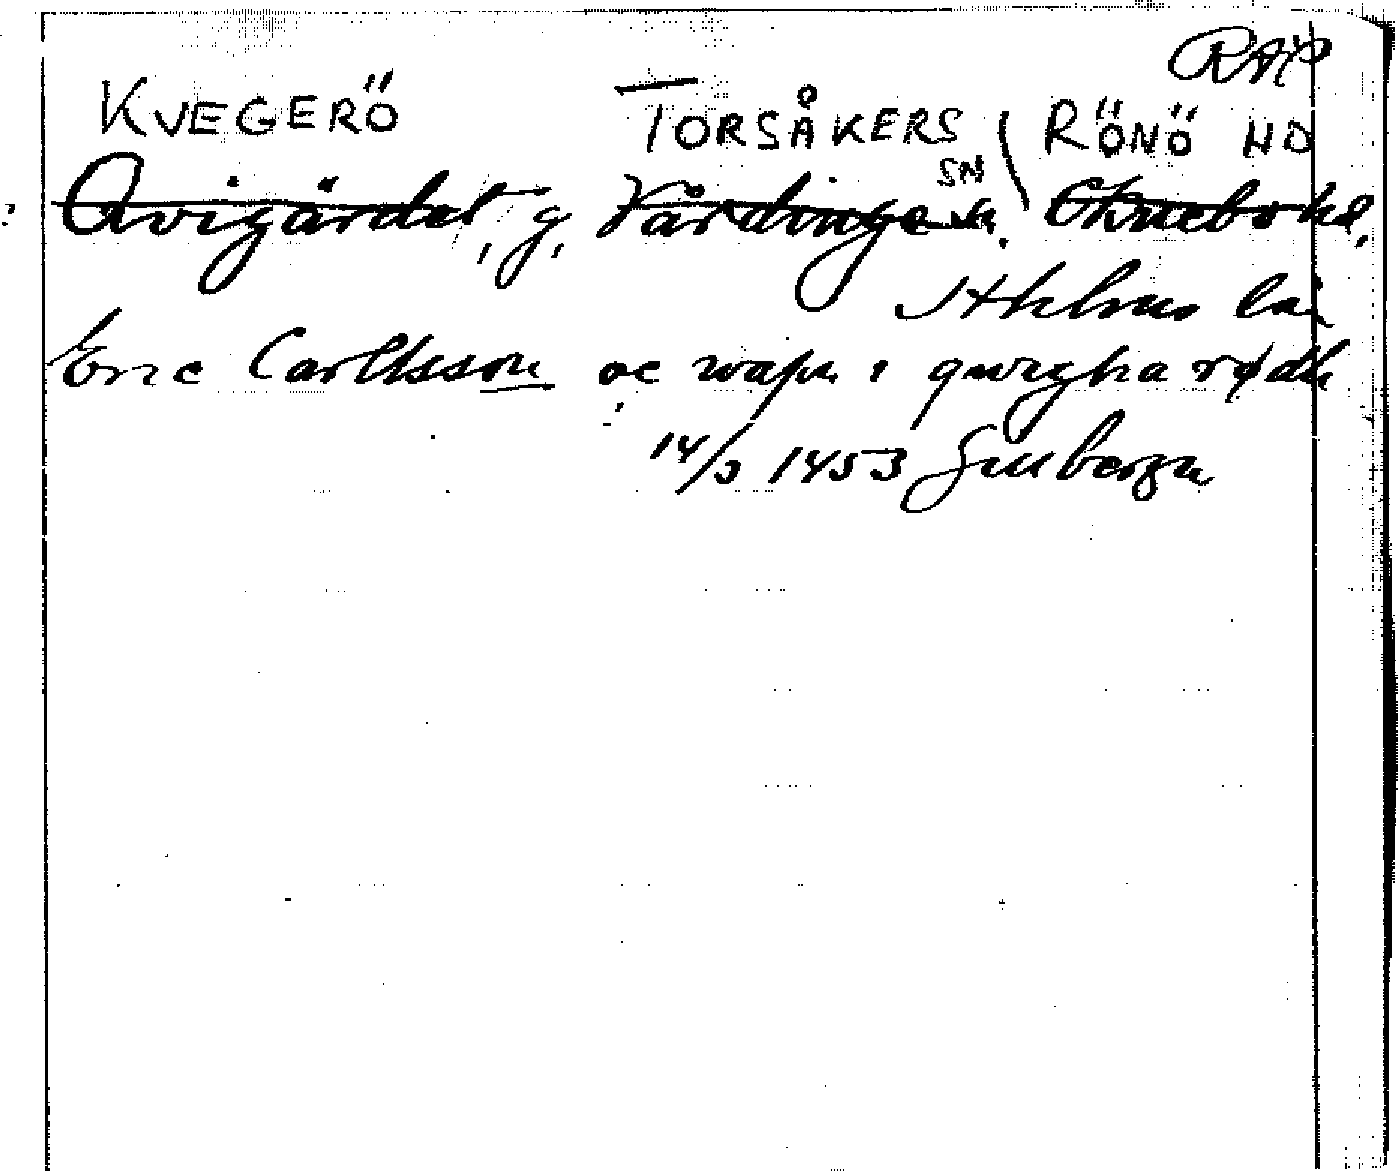 RAP
KVEGERÖ TORSÅKERS SN RÖNÖ HD
Qvigärdet, g, Vårdinge sn. Öknebo hd,
Sthlms län
Eric Carllsson oc wapn i qwegha rødh
14/3 1453